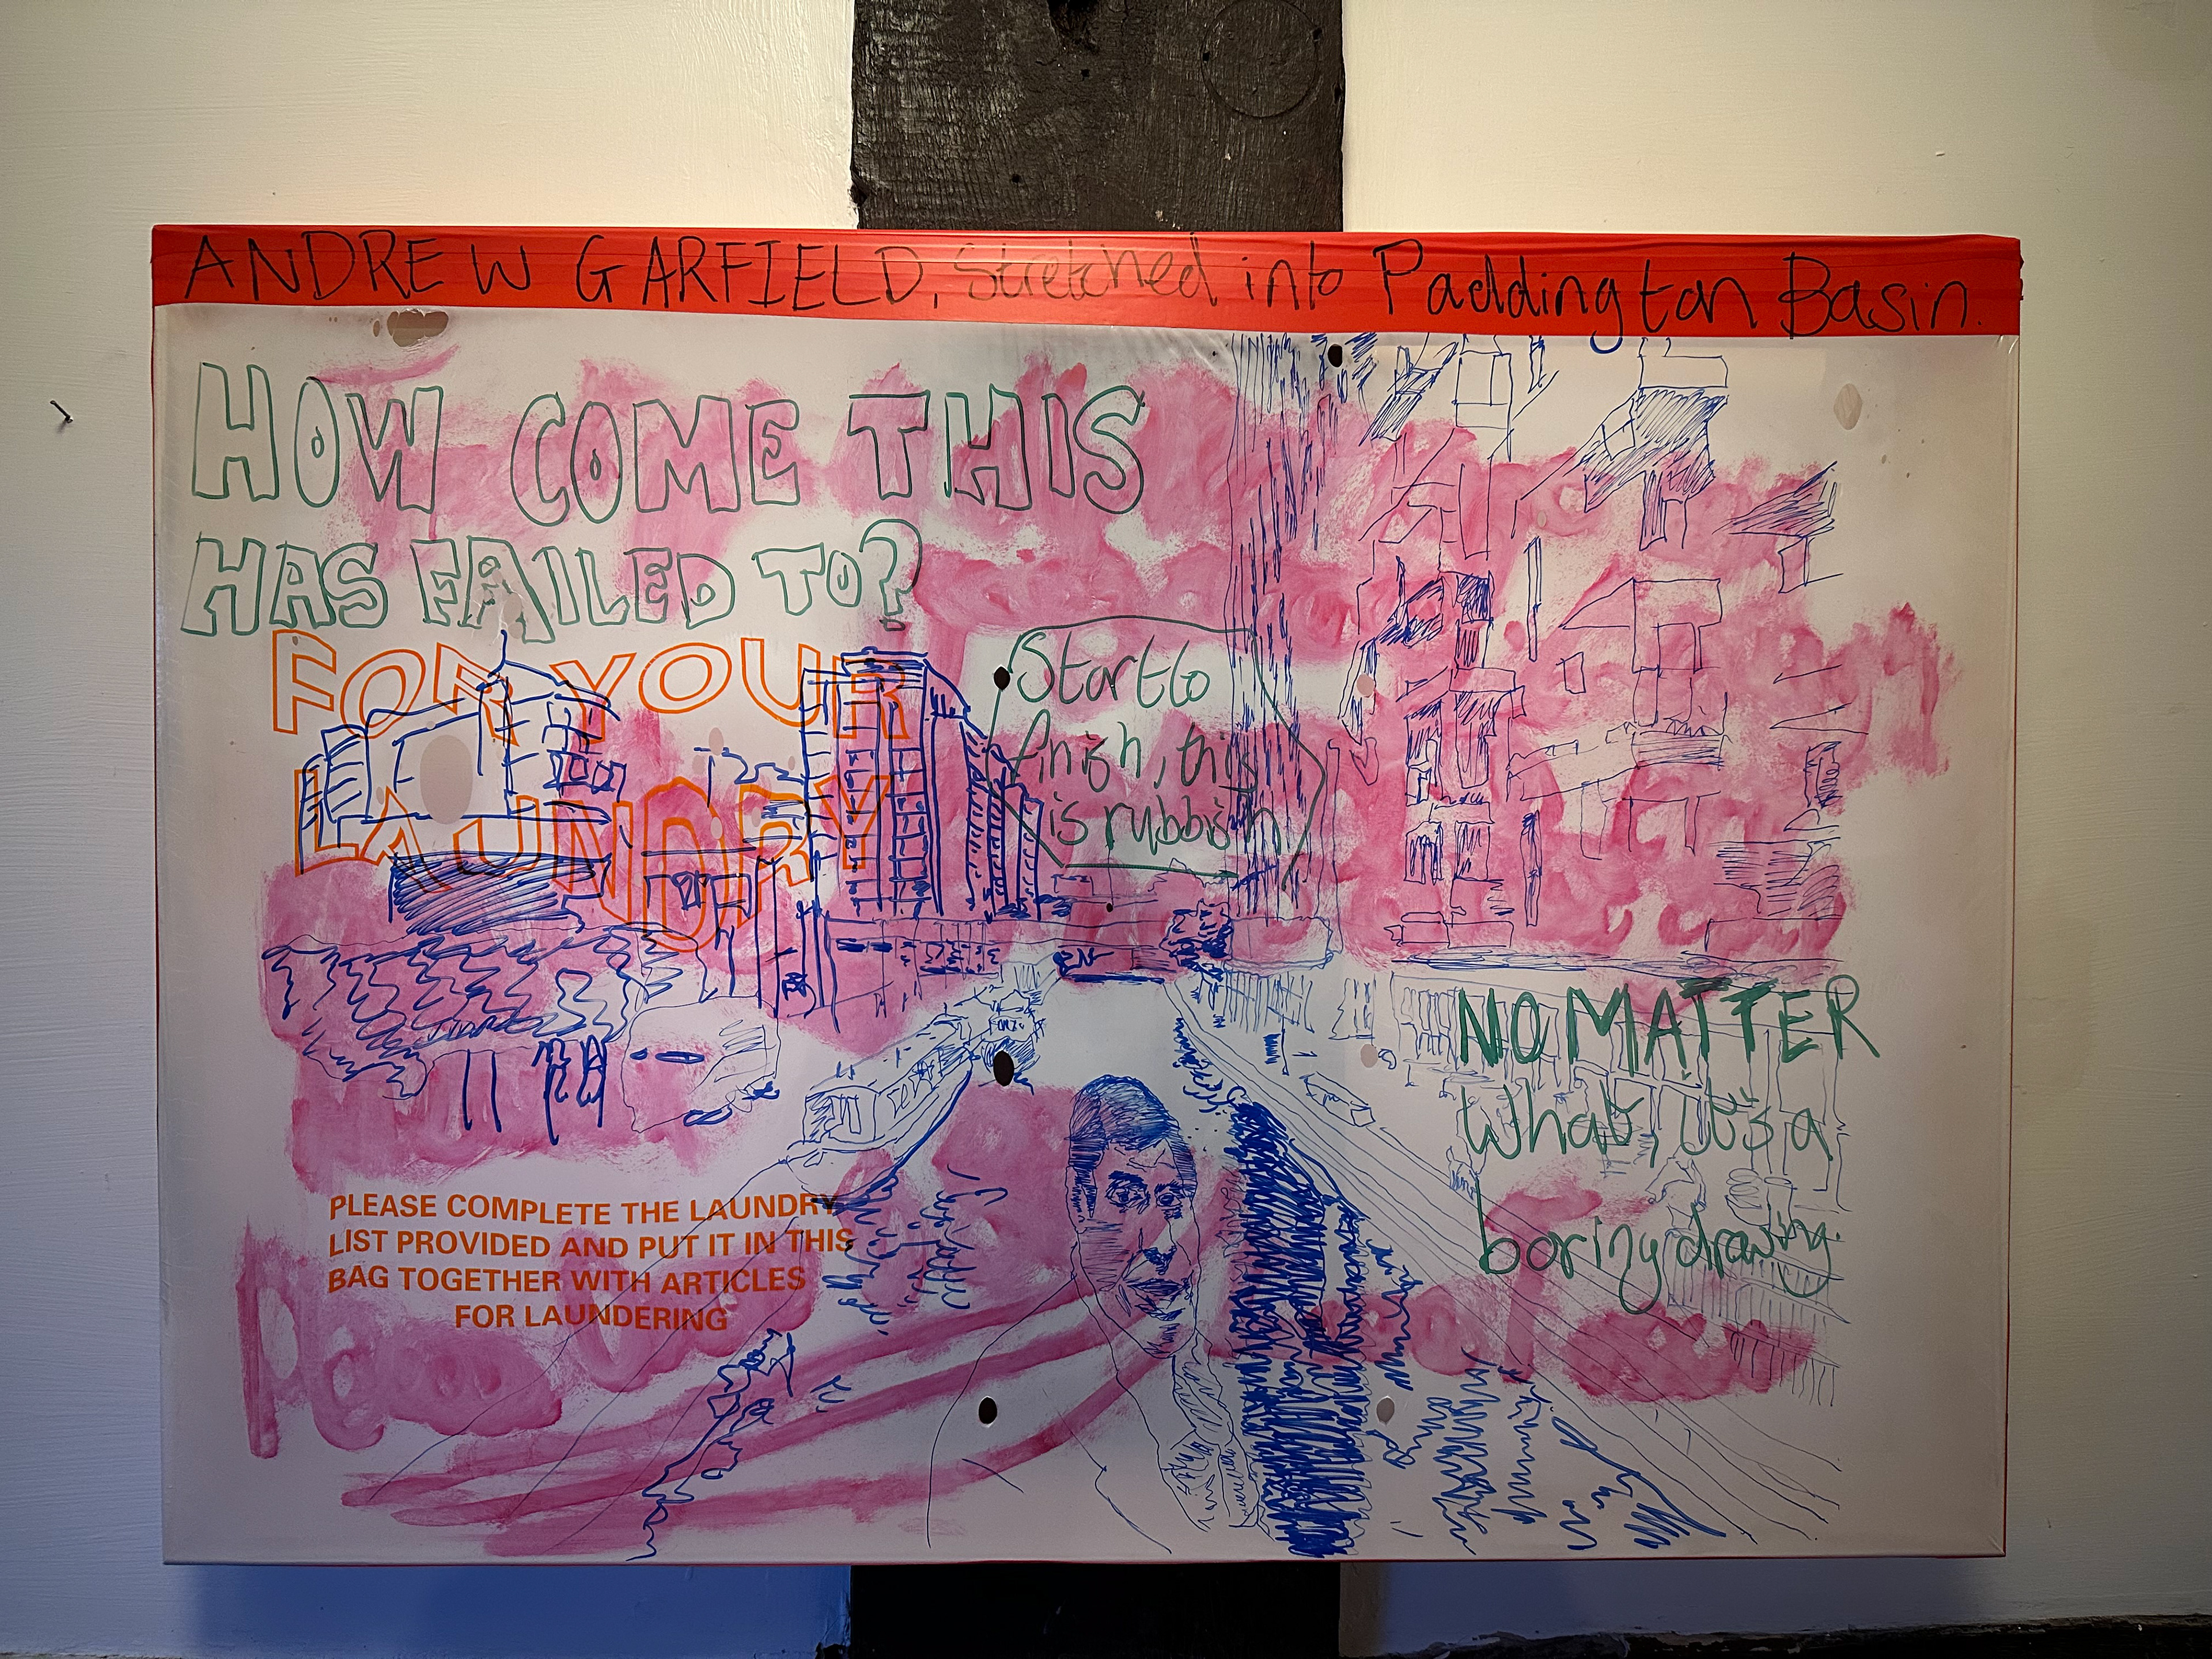 ANDREW GARFIELD, Stretched into Paddington Basin.
HOW COME THIS
HAS FAILED TO?
FOR YOUR
LAUNDRY
Start to
finish, this
is rubbish
NO MATTER
what, it's a
boring drawing.
PLEASE COMPLETE THE LAUNDRY
LIST PROVIDED AND PUT IT IN THIS
BAG TOGETHER WITH ARTICLES
FOR LAUNDERING